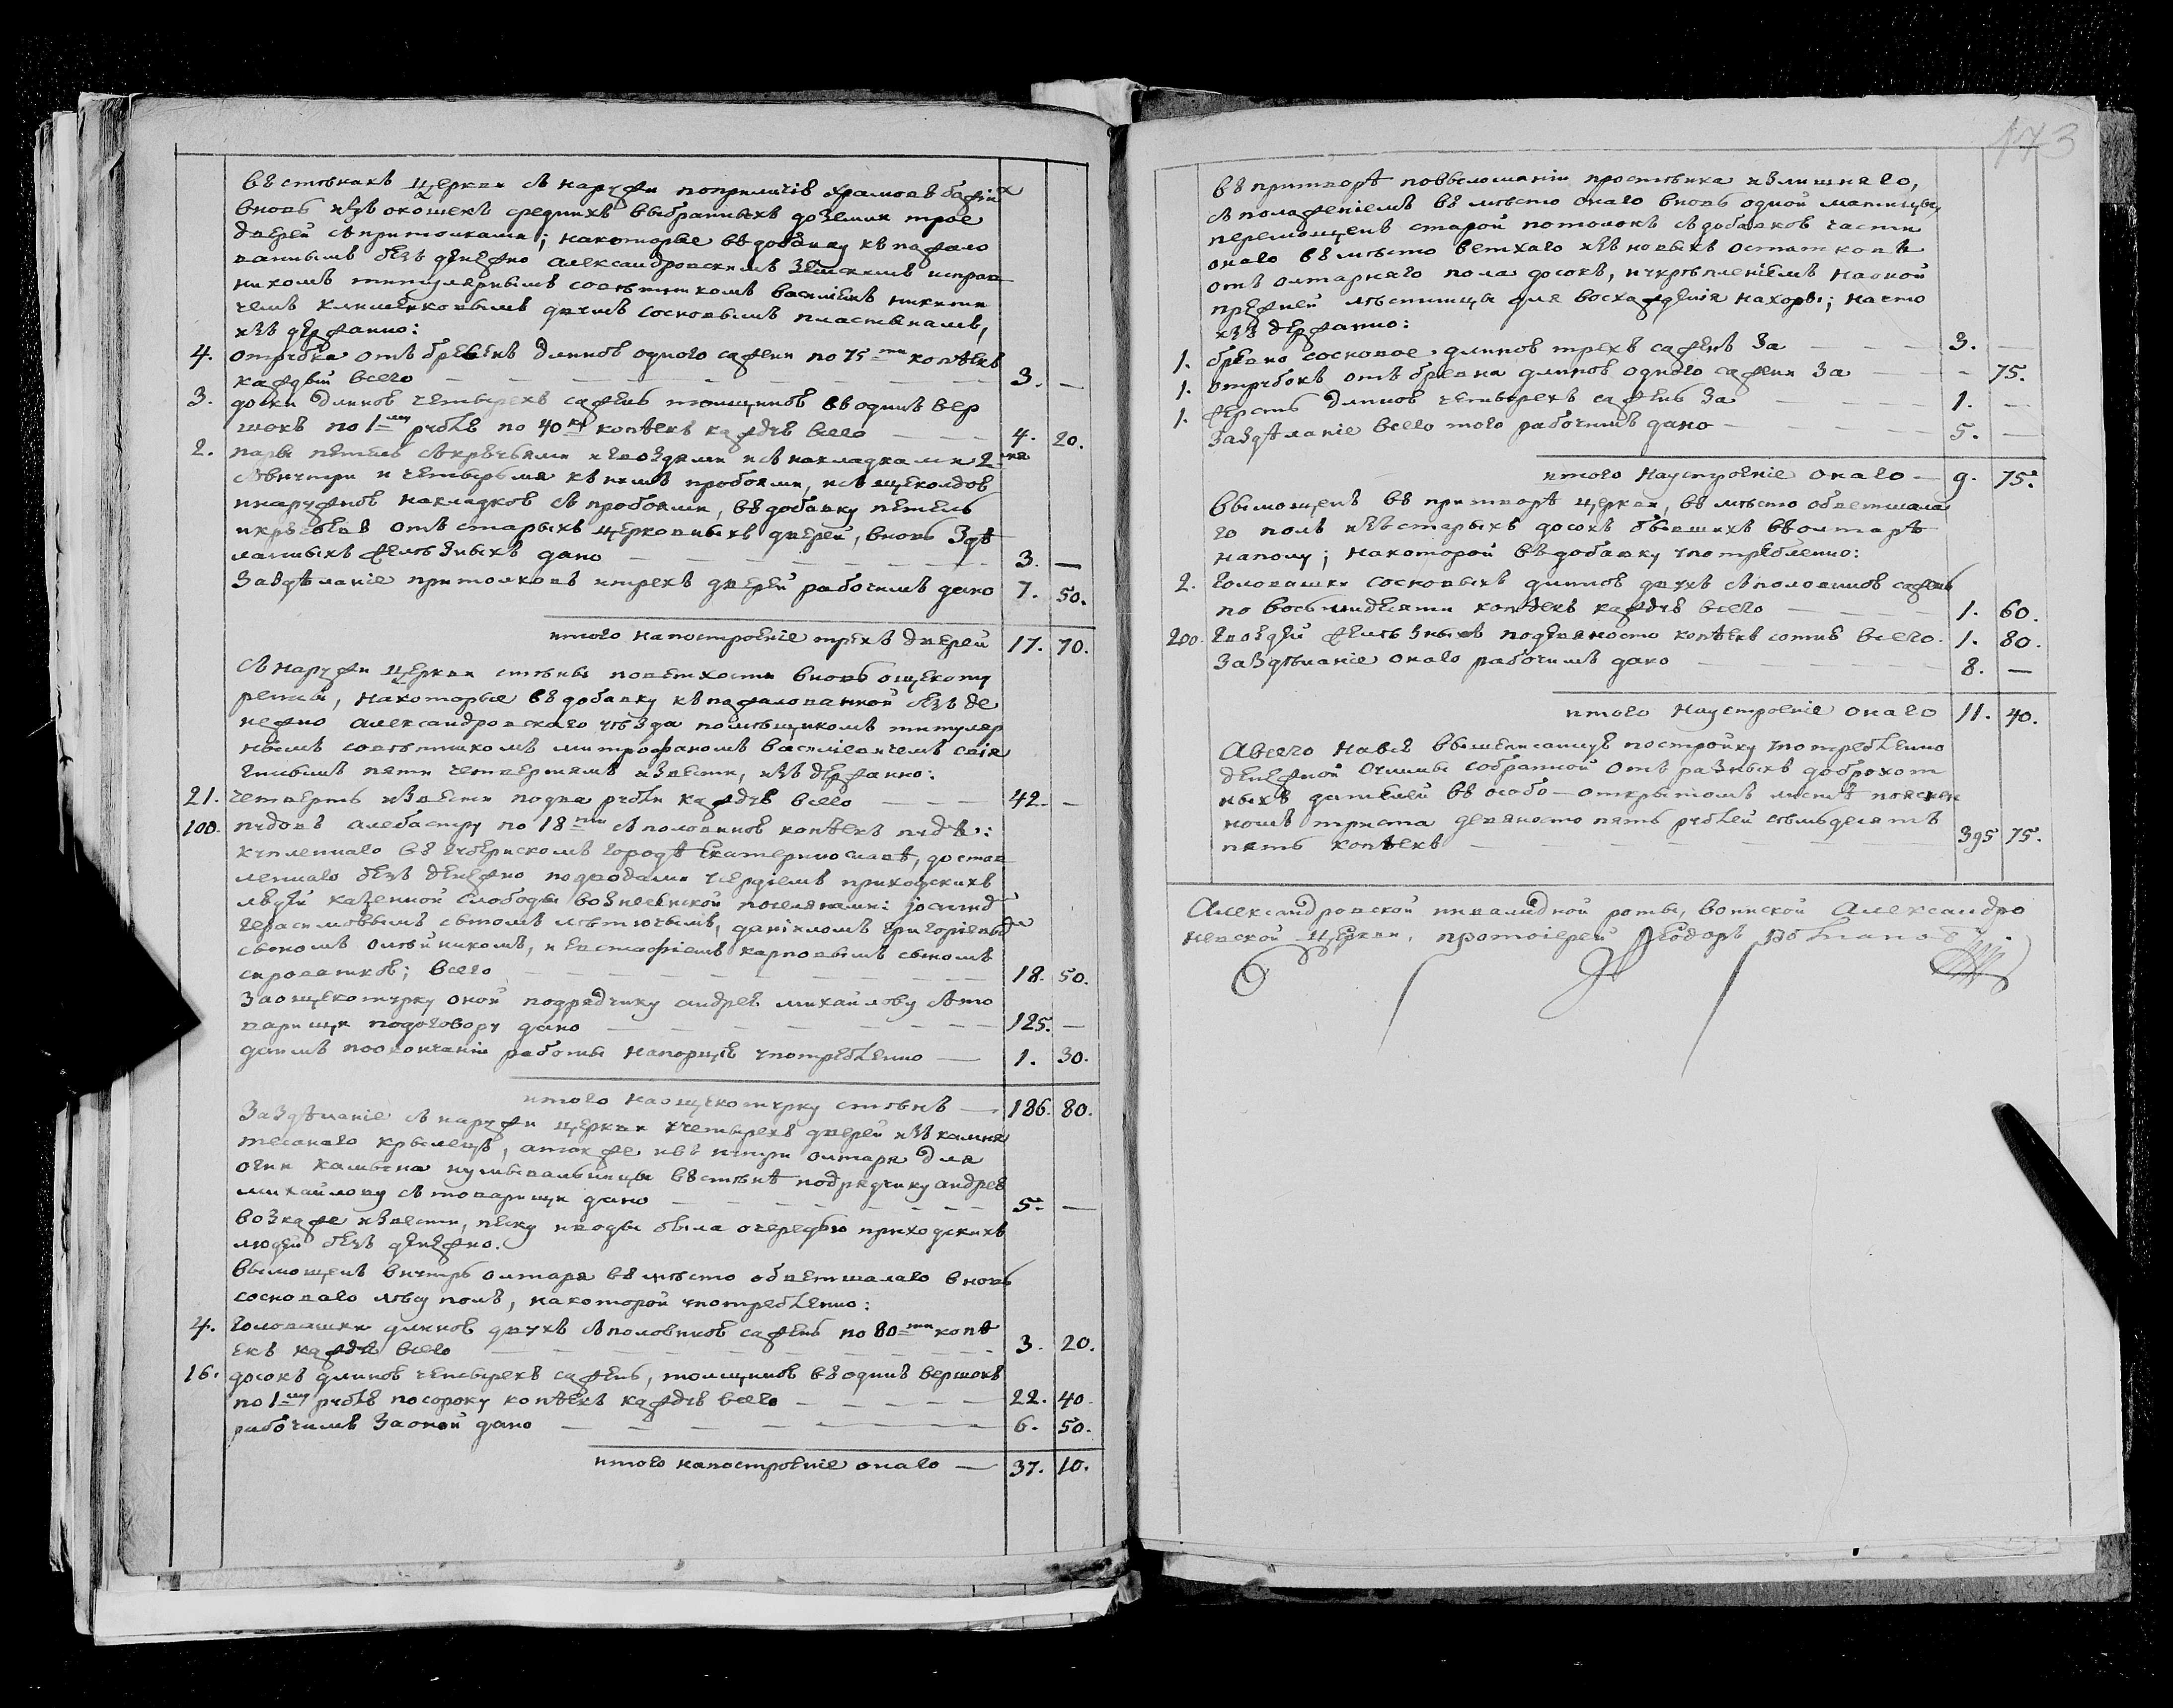 въ стѣнахъ церкви съ наружи поприличію храмовъ божіих
вновь изъ окошекъ среднихъ выбранныхъ доземли трое
дверей съ притолками; накоторые въ добавку къ пожало
ваннымъ безъ денежно александровскимъ земскимъ исправ
никомъ титулярнымъ совѣтникомъ василіемъ никити
чемъ клименковымъ двумъ сосновымъ пластинамъ,
издержанно:
4. отрубка отъ бревенъ длиною одного сажени по 75 ти копѣекъ
каждый всего — 3. —
3. доски длиною четырехъ сажень толщиною въ одинъ вер
шокъ по 1му рублю по 40 ка копѣекъ каждую всего — 4. 20.
2. пары петель съ крючьями и гвоздями и съ накладками 2 мя
снутри и четырьмя къ нимъ пробоями, и съ щеколдою
инаружною накладкою съ пробоями, въ добавку петель
икрючьевъ отъ старыхъ церковныхъ дверей, вновь здѣ
ланныхъ желѣзныхъ дано — 3. —
Заздѣланіе притолковъ итрехъ дверей рабочимъ дано 7. 50.
итого напостроеніе трехъ дверей 17. 70.
Съ наружи церкви стѣны поветхости вновь ощекоту
рены, накоторые въ добавку къ пожалованной безъ де
нежно александровскаго уѣзда помѣщикомъ титуляр
нымъ совѣтникомъ митрофаномъ василіевичемъ
пяти четвертямъ извести, издержанно:
21. четверть извести подва рубли каждую всего — 42. —
100. пудовъ алебастру по 18 ти съ половиною копѣекъ пудъ:
купленнаго въ губернскомъ городѣ Екатеринославѣ, достав
леннаго безъ денежно подводами усердіемъ приходскихъ
людей казенной слободы вознесенской поселянами:
герасимовымъ сыномъ даніиломъ григоріевым
сыномъ олѣйникомъ, и евстафіемъ карповымъ сыномъ
всего — 18. 50.
Заощекотурку оной подрядчику андрею михайлову съ то
варищи подоговору дано — 125. —
данмъ поокончаніи работы напорцію употребленно — 1. 30.
итого наощекотурку стѣнъ — 186. 80.
Заздѣланіе съ наружи церкви учетырехъ дверей изъ камня
тесанаго крылецъ, атокже ивъ нутри олтаря для
огня камина иумывальницы въ стѣнѣ подрядчику андрею
михайлову съ товарищи дано — 5. —
возка же извести, песку иводы была очередью приходскихъ
людей безъ денежно.
Вымощенъ внутрь олтаря въ мѣсто обветшалаго вновь
сосноваго лѣсу полъ, накоторой употребленно:
4. головашки длиною двухъ съ половиною сажень по 80 ти копѣ
екъ каждую всего — 3. 20.
16. досокъ длиною четырехъ сажень, толщиною въ одинъ вершокъ
по 1му рублю посороку копѣекъ каждую всего — 22. 40.
рабочимъ Заоной дано — 6. 50.
итого напостроеніе онаго — 37. 10.
173
въ притворѣ повыломаніи простѣнка излишняго,
съ положеніемъ въ мѣсто онаго вновь одной матицы,
перемощенъ старой потолокъ съ добавкою части
онаго въ мѣсто ветхаго изъ новыхъ остатковъ
отъ олтарняго пола досокъ, иукрѣпленіемъ наоной
прежней лѣстницы для восхожденія нахоры; начто
издержанно:
1. бревно сосновое длиною трехъ сажень За — 3. —
1. отрубокъ отъ бревна длиною одного сажени За — - 75.
1. жерсть длиною четырехъ сажень За — 1. —
Заздѣланіе всего того рабочимъ дано — 5. —
итого наустроеніе онаго — 9. 75.
Вымощенъ въ притворѣ церкви, въ мѣсто обветшала
го полъ изъ старыхъ досокъ бывшихъ въ олтарѣ
наполу; накоторой въ добавку употребленно:
2. головашки сосновыхъ длиною двухъ съ половиною сажень
по восьмидесяти копѣекъ каждую всего — 1. 60.
200. гвоздей желѣзныхъ подевяносто копѣекъ сотню всего 1. 80.
Заздѣланіе онаго рабочимъ дано — 8. —
итого наустроеніе онаго 11. 40.
Авсего навсю вышеписанную постройку употребленно
денежной суммы собранной отъ разныхъ доброхот
ныхъ дателей въ особо — открытомъ листѣ пояснен
номъ триста девяносто пять рублей семьдесятъ
пять копѣекъ — 395 75.
Александровской инвалидной роты, воинской Александро
невской церкви, протоіерей Ѳеодоръ